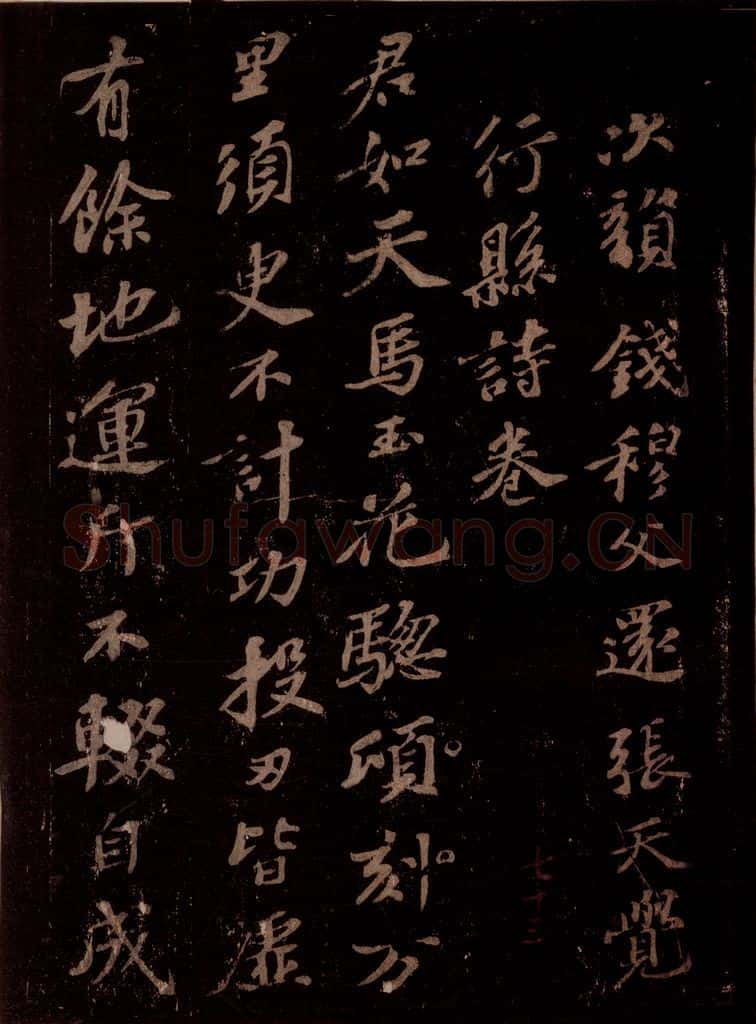 次韻錢穆父還張天覺
行縣詩卷
君如天馬玉花驄頃刻万
里須臾不計功投刃皆虛
有餘地運斤不輟自成
七十三
Shufawang.CN